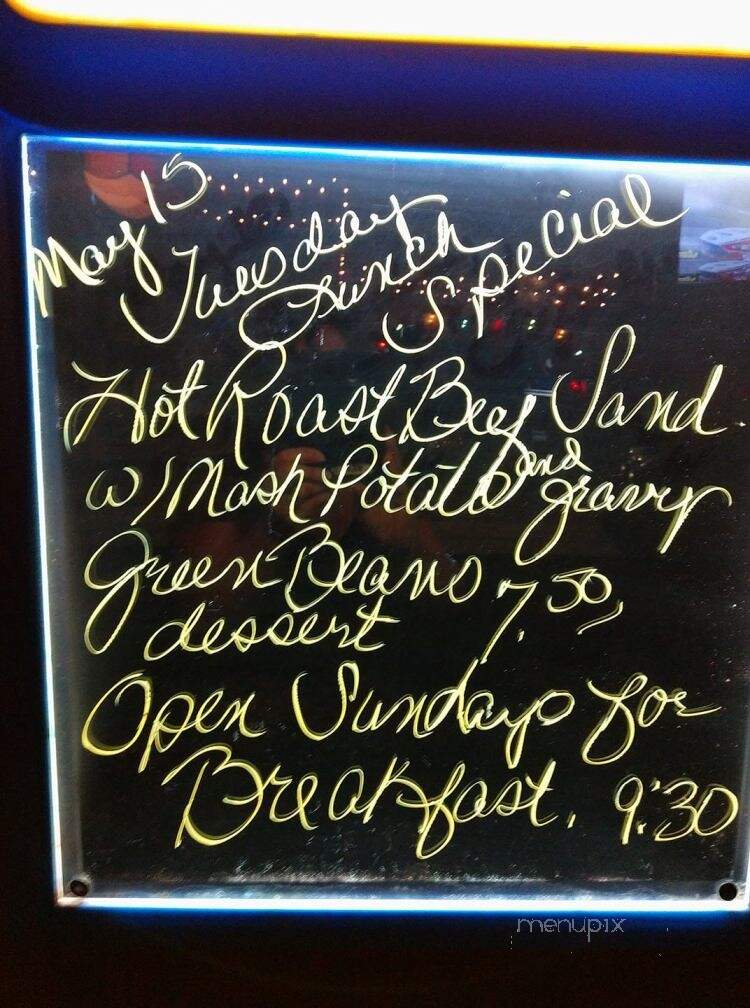 May 15
Tuesday
Lunch
Special
Hot Roast Beef Sand.
w/ Mash Potato and gravy
Green Beans 7.50,
dessert
Open Sundays for
Breakfast. 9:30
menupix